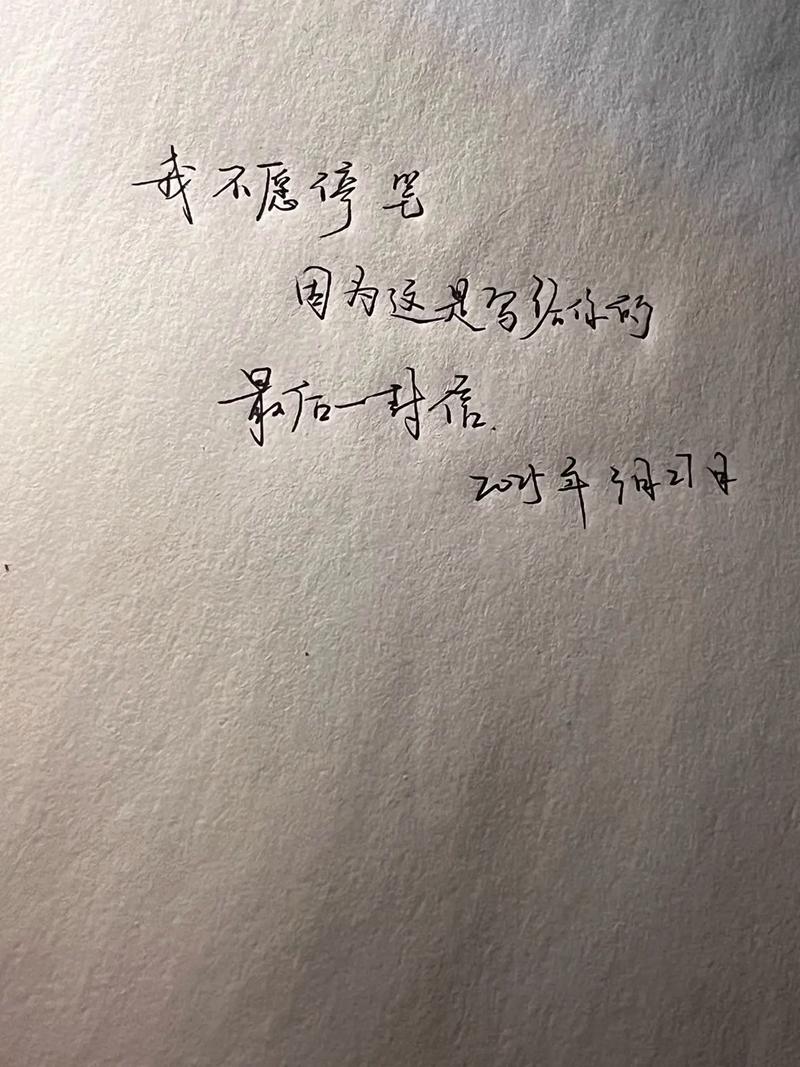 我不愿停笔
因为这是写给你的
最后一封信.
2025年3月27日